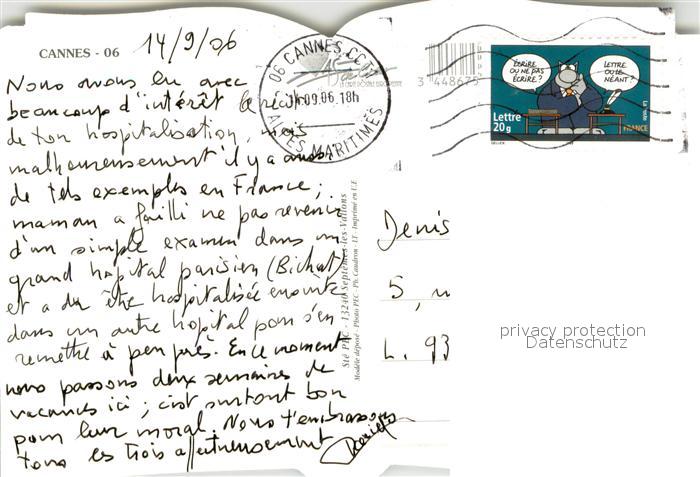 CANNES - 06
14/9/06
Nous avons lu avec
beaucoup d'intérêt le récit
de ton hospitalisation, mais
malheureusement il y a aussi
de tels exemples en France ;
maman a failli ne pas revenir
d'un simple examen dans un
grand hôpital parisien (Bichat)
et a dû être hospitalisée ensuite
dans un autre hôpital pour s'en
remettre à peu près. En ce moment
nous passons deux semaines de
vacances ici ; c'est surtout bon
pour leur moral. Nous t'embrassons
tous les trois affectueusement
06 CANNES CC
14-09.06. 18h
ALPES MARITIMES
3 448675
ÉCRIRE
OU NE PAS
ÉCRIRE ?
LETTRE
OU LE
NÉANT ?
Lettre
20g
La Poste
FRANCE
GELUCK
Sté PEC - 13240 Septèmes-les-Vallons
Modèle déposé - Photo PEC - Ph. Caudron - LT - Imprimé en U.E
Denis
5,
L. 93
privacy protection
Datenschutz